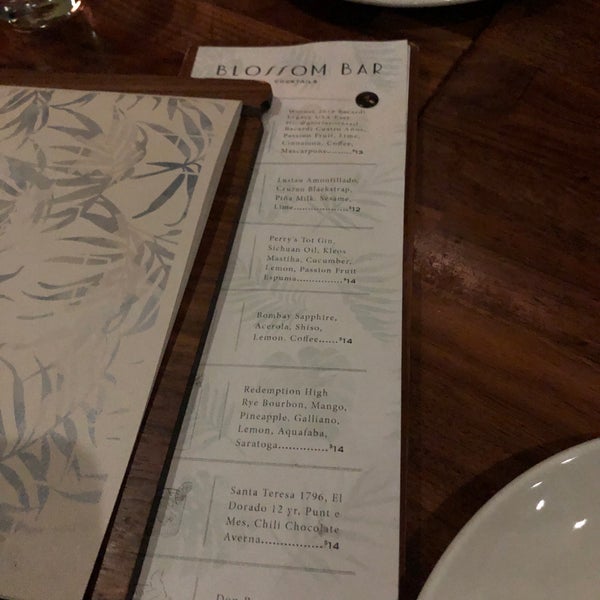 BLOSSOM BAR
COCKTAILS
Winner 2019 Bacardi
Legacy USA East
Bacardi Cuatro Años,
Passion Fruit, Lime,
Cinnamon, Coffee,
Mascarpone $13
Lustau Amontillado,
Cruzan Blackstrap,
Piña Milk, Sesame,
Lime.................$12
Perry's Tot Gin,
Sichuan Oil, Kleos
Mastiha, Cucumber,
Lemon, Passion Fruit
Espuma...............$14
Bombay Sapphire,
Acerola, Shiso,
Lemon, Coffee......$14
Redemption High
Rye Bourbon, Mango,
Pineapple, Galliano,
Lemon, Aquafaba,
Saratoga..............$14
Santa Teresa 1796, El
Dorado 12 yr, Punt e
Mes, Chili Chocolate
Averna..................$14